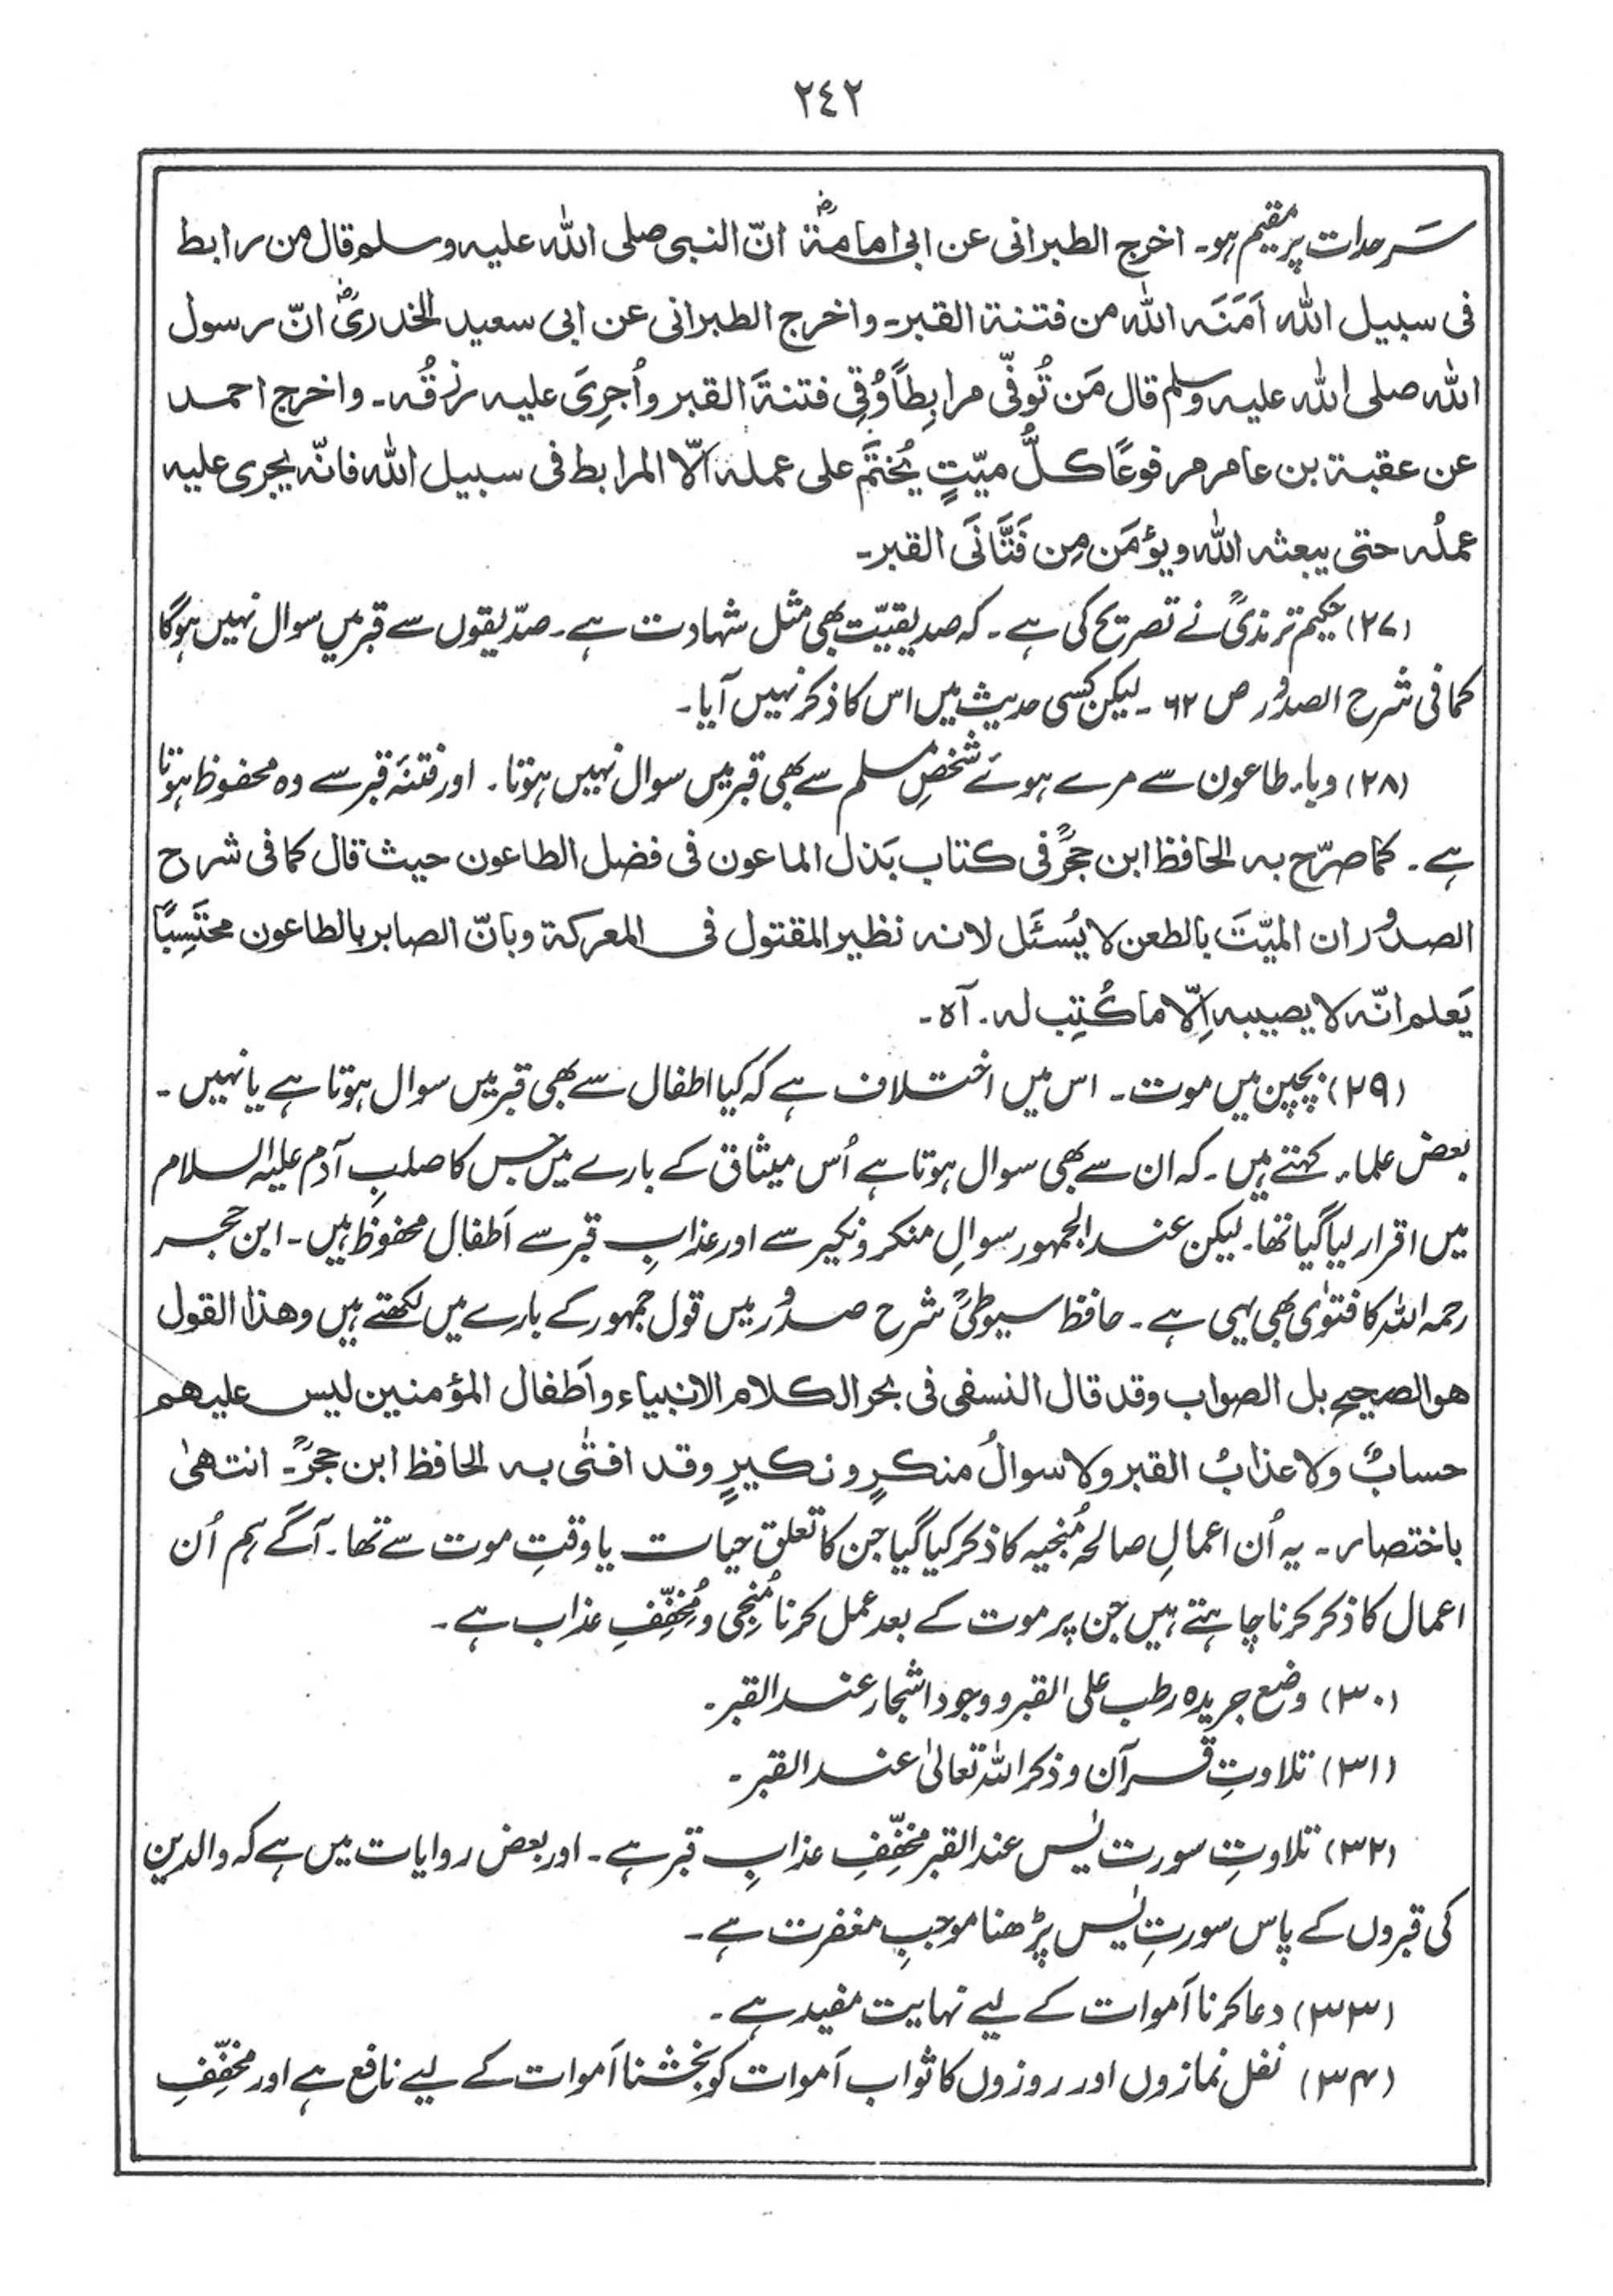 ٢٤٢
سرحدات پر مقیم ہو۔ اخرج الطبرانی عن ابی امامۃؓ انّ النبی صلی اللہ علیہ وسلم قال من رابط
فی سبیل اللہ اَمَنَہ اللہ من فتنۃ القبر۔ واخرج الطبرانی عن ابی سعید الخدریؓ انّ رسول
اللہ صلی اللہ علیہ وسلم قال مَن تُوفّی مرابِطاً وُقِی فتنۃَ القبر واُجرِیَ علیہ رزقُہ۔ واخرج احمد
عن عقبۃ بن عامر مرفوعًا کلُّ میّتٍ یُختَم علی عملہ الّا المرابط فی سبیل اللہ فانّہ یجری علیہ
عملُہ حتی یبعثہ اللہ ویؤمَن مِن فَتَّانَی القبر۔
(۲۷) حکیم ترمذیؒ نے تصریح کی ہے۔ کہ صدیقیّت بھی مثل شہادت ہے۔ صدّیقوں سے قبر میں سوال نہیں ہوگا
کما فی شرح الصدُور ص ۶۲ ۔ لیکن کسی حدیث میں اس کا ذکر نہیں آیا۔
(۲۸) وباء طاعون سے مرے ہوئے شخصِ مسلم سے بھی قبر میں سوال نہیں ہوتا۔ اور فتنۂ قبر سے وہ محفوظ ہوتا
ہے۔ کما صرّح بہ الحافظ ابن حجرؒ فی کتاب بَذل الماعون فی فضل الطاعون حیث قال کما فی شرح
الصدُور ان المیّتَ بالطعن لا یُسئَل لانہ نظیر المقتول فی المعرکۃ وبانّ الصابر بالطاعون محتَسِبًا
یَعلم انّہ لا یصیبہ اِلّا ما کُتِب لہ۔ آہ۔
(۲۹) بچپن میں موت۔ اس میں اختلاف ہے کہ کیا اطفال سے بھی قبر میں سوال ہوتا ہے یا نہیں۔
بعض علماء کہتے ہیں۔ کہ ان سے بھی سوال ہوتا ہے اُس میثاق کے بارے میں جس کا صلبِ آدم علیہ السلام
میں اقرار لیا گیا تھا۔ لیکن عند الجمہور سوالِ منکر و نکیر سے اور عذابِ قبر سے اَطفال محفوظ ہیں۔ ابن حجر
رحمہ اللہ کا فتوٰی بھی یہی ہے۔ حافظ سیوطیؒ شرح صدُور میں قول جمہور کے بارے میں لکھتے ہیں وھذا القول
ھو الصحیح بل الصواب وقد قال النسفی فی بحر الکلام الانبیاء واَطفال المؤمنین لیس علیھم
حسابٌ ولا عذابُ القبر ولا سوالُ منکرٍ و نکیرٍ وقد افتٰی بہ الحافظ ابن حجرؒ۔ انتھیٰ
باختصار۔ یہ اُن اعمالِ صالحہ مُنجیہ کا ذکر کیا گیا جن کا تعلق حیات یا وقتِ موت سے تھا۔ آگے ہم اُن
اعمال کا ذکر کرنا چاہتے ہیں جن پر موت کے بعد عمل کرنا مُنجِی و مُخفِّفِ عذاب ہے۔
(۳۰) وضع جریدہ رطب علی القبر و وجود اشجار عند القبر۔
(۳۱) تلاوتِ قرآن و ذکر اللہ تعالیٰ عند القبر۔
(۳۲) تلاوتِ سورت یٰس عند القبر مخفِّفِ عذابِ قبر ہے۔ اور بعض روایات میں ہے کہ والدین
کی قبروں کے پاس سورتِ یٰس پڑھنا موجبِ مغفرت ہے۔
(۳۳) دعا کرنا اَموات کے لیے نہایت مفید ہے۔
(۳۴) نفل نمازوں اور روزوں کا ثواب اَموات کو بخشنا اَموات کے لیے نافع ہے اور مخفِّفِ